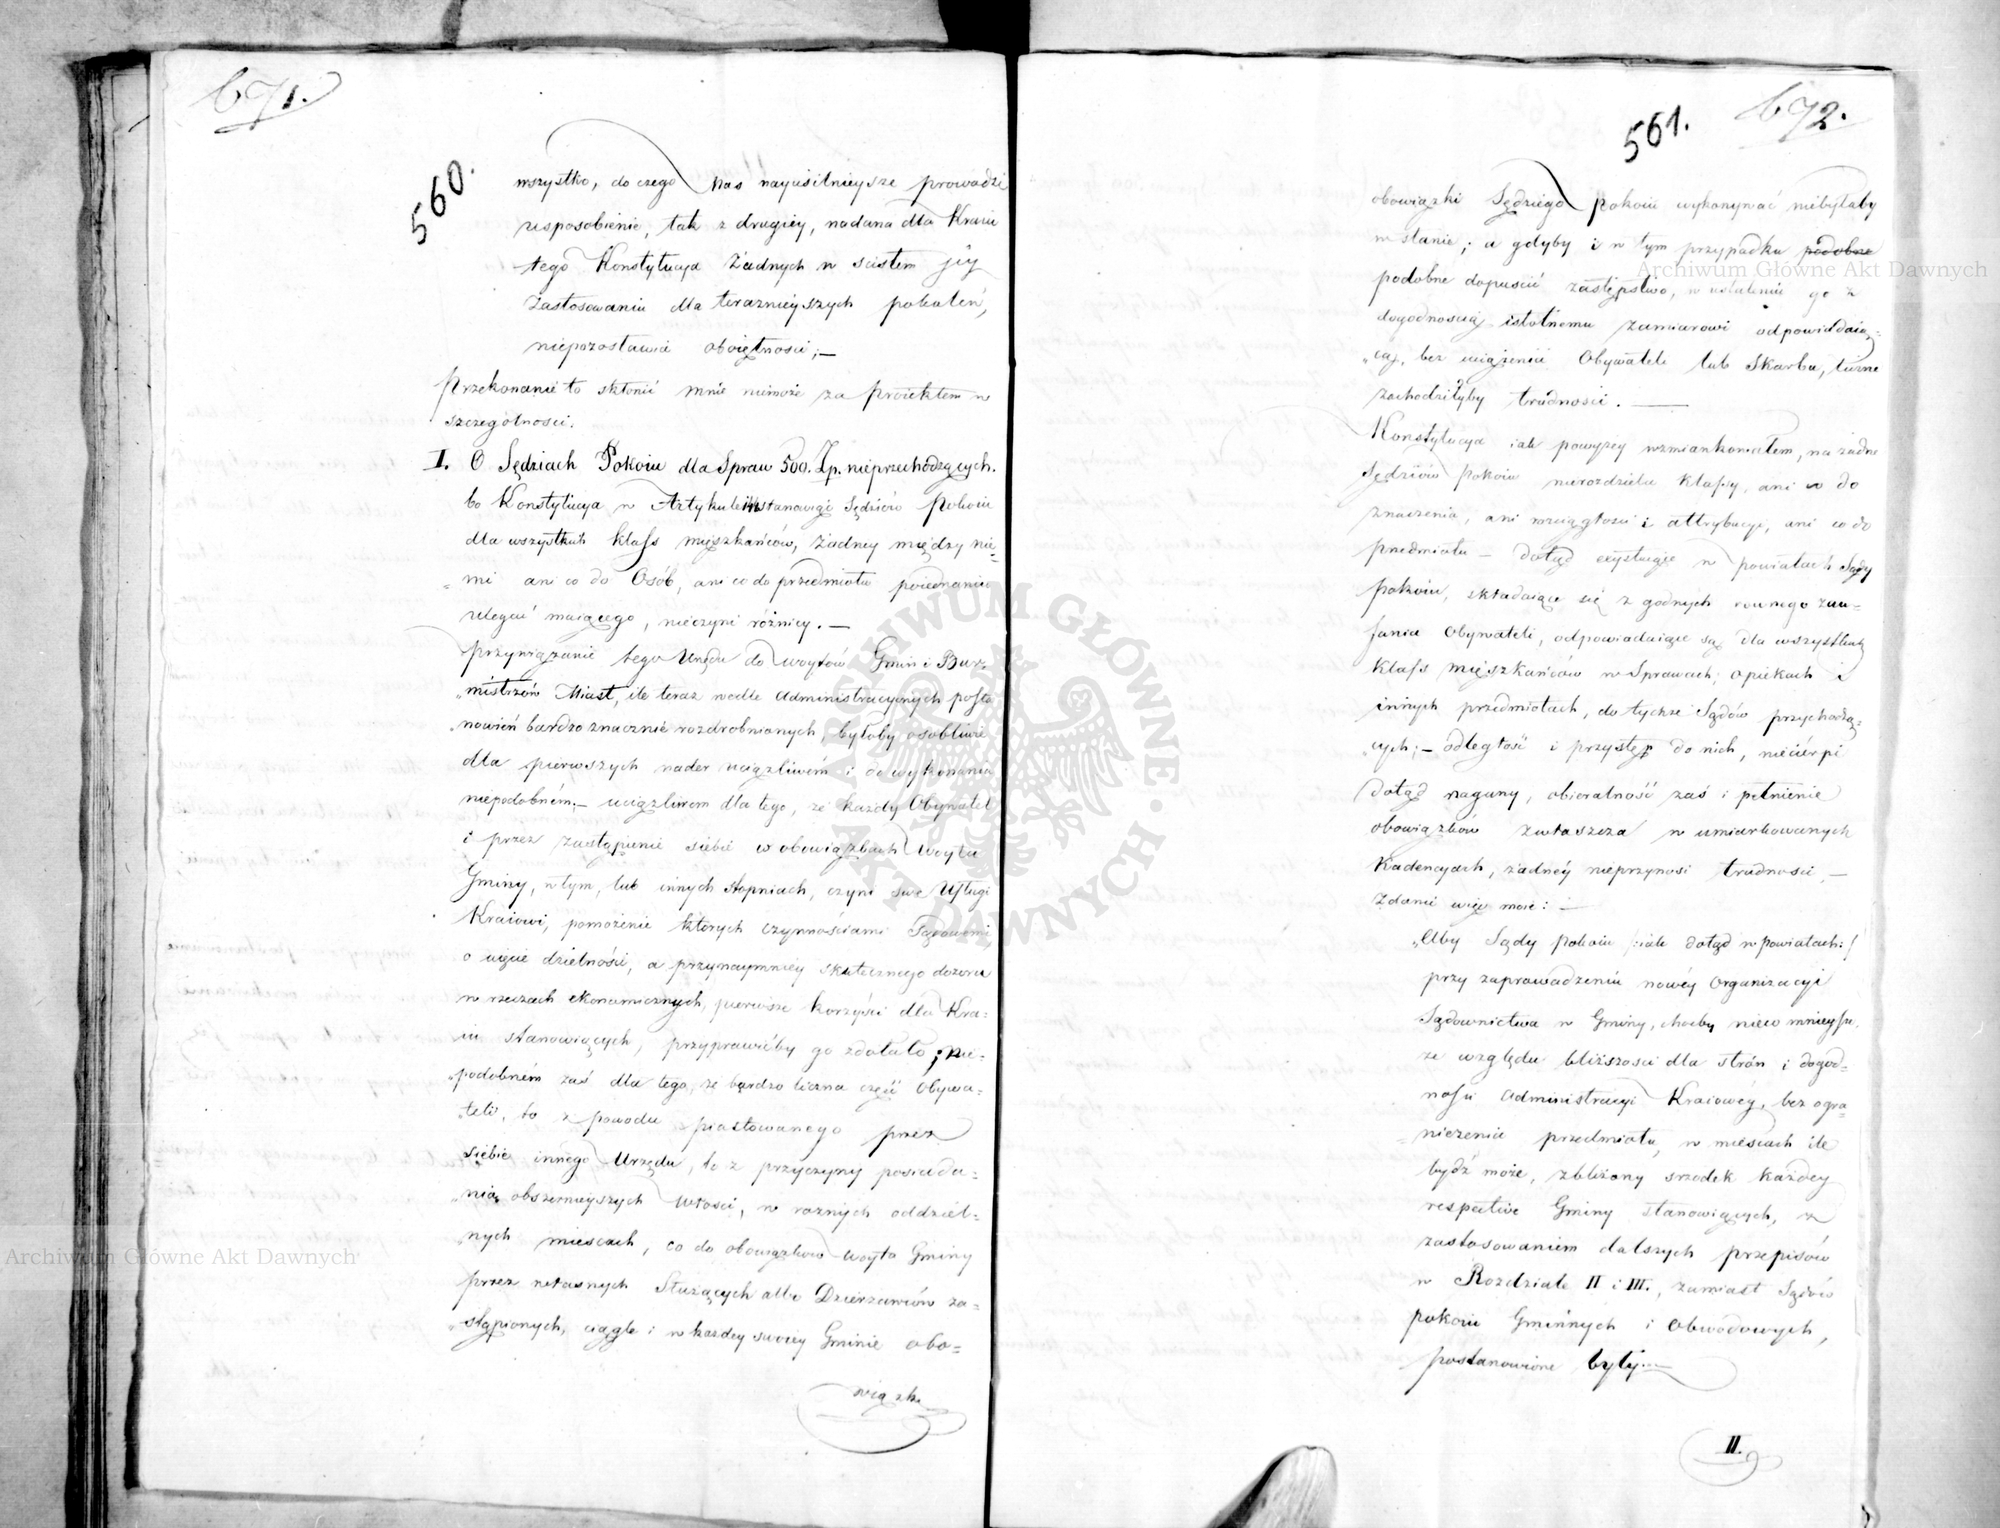 671.
560.
wszystko, do czego nas nayusilnieysze prowadzi
usposobienie, tak z drugiéy, nadana dla Kraiu
tego Konstytucya żadnych w scisłem jéy
zastosowaniu dla teraznieyszych pokoleń,
niepozostawia obojętności;—
Przekonanie to skłonić mnie niemoże za proiektem w
szczególności.
I. O Sędziach Pokoiu dla Spraw 500. Zp. nieprzechodzących.
bo Konstytucya w Artykule 144 stanowiąc Sędziów Pokoiu
dla wszystkich klass mięszkańców, żadney między nie=
mi ani co do Osób, ani co do przedmiotu poiednaniu
ulegać maiącego, nieczyni różnicy.—
przywiązanie tego Urzędu do woytów Gmin i Burz
„mistrzów Miast, ile teraz wedle administracyinych posta
„nowień bardzo znacznie rozdrobnionych, byłoby osobliwie
dla pierwszych nader uciążliwem i do wykonania
niepodobném;— uciążliwem dla tego, że każdy Obywatel
i przez zastąpienie siebie w obowiązkach woyta
Gminy, w tym, lub innych stopniach, czyni swe Usługi
Kraiowi, pomnożenie których czynnościami Sądowemi
o ujęcie dzielności, a przynaymniéy skutecznego dozoru
w rzeczach ekonomicznych, pierwsze korzyści dla Kra=
iu stanowiących, przyprawićby go zdołało; nie=
„podobném zaś dla tego, że bardzo liczna część Obywa=
„teli, to z powodu piastowanego przez
siebie innego Urzędu, to z przyczyny posiada=
„nia obszernieyszych włości, w roznych oddziel=
„nych mieścach, co do obowiązków woyta Gminy
przez własnych Służących albo Dzierzawców za=
„stąpionych, ciągle i w kazdey swoiéy Gminie obo=
wiązki
561.
672.
obowiązki Sędziego pokoiu wykonywać niebyłaby
w stanie; a gdyby i w tym przypadku podobne
podobne dopuścić zastępstwo, w ustaleniu go z
dogodnością istotnemu zamiarowi odpowiadaią=
„cą, bez uciążenia Obywatela lub Skarbu, liczne
zachodziłyby trudności.—
Konstytucya iak powyżey wzmiankowałem, na żadne
Sędziów pokoiu nierozdziela klassy, ani co do
znaczenia, ani rozciągłości i attrybucyi, ani co do
przedmiotu — dotąd exystuiące w powiatach Sądy
pokoiu, składaiące się z godnych równego zau=
fania Obywateli, odpowiadaiące są dla wszystkich
klass mięszkańców w Sprawach, opiekach i
innych przedmiotach, do tychże Sądów przychodzą=
„cych;— odległość i przystęp do nich, niecierpi
dotąd nagany, obieralność zaś i pełnienie
obowiązków zwłaszcza w umiarkowanych
kadencyach, żadnéy nieprzynosi trudności.—
Zdanie więc moie:—
„Aby Sądy pokoiu /:iak dotąd w powiatach:/
przy zaprowadzeniu nowéy Organizacyi
Sądownictwa w Gminy, choćby nieco mnieysze,
ze względu bliższości dla stron i dogod=
nosci Administracyi Kraiowéy, bez ogra=
niczenia przedmiotu, w mieścach ile
bydź może, zbliżony srzodek każdey
respective Gminy stanowiących, z
zastosowaniem dalszych przepisów
w Rozdziale II i III., zamiast Sądów
pokoiu Gminnych i Obwodowych,
postanowione były.—
II.
Archiwum Główne Akt Dawnych
Archiwum Główne Akt Dawnych
ARCHIWUM GŁÓWNE AKT DAWNYCH